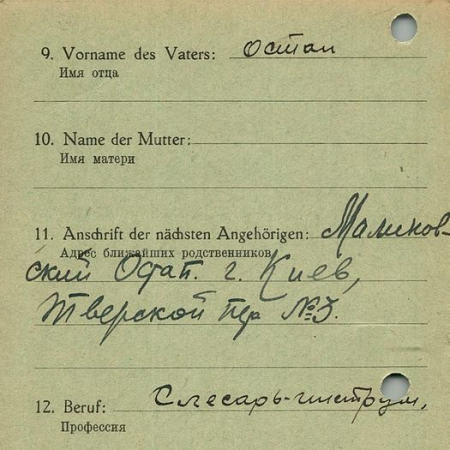 9. Vorname des Vaters: Остап
Имя отца
10. Name der Mutter:
Имя матери
11. Anschrift der nächsten Angehörigen: Малинов-
Адрес ближайших родственников
ский Остап. г. Киев,
Тверской пер №3.
12. Beruf: Слесарь-инструм.
Профессия